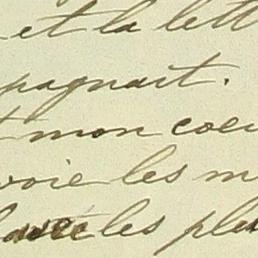 et la lett
pagnait.
mon coeu
voie les m
les plu